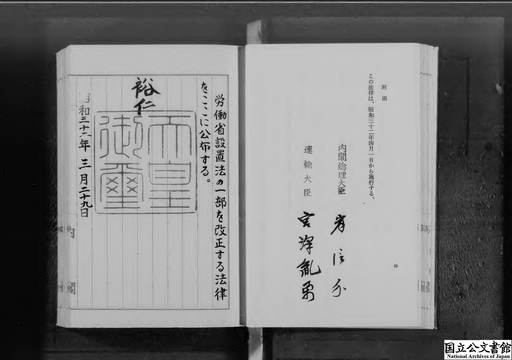 附則
この法律は、昭和三十二年四月一日から施行する。
内閣総理大臣
岸信介
運輸大臣
宮澤胤勇
労働省設置法の一部を改正する法律
をここに公布する。
裕仁
天皇
御璽
昭和三十二年三月二十九日
国立公文書館
National Archives of Japan